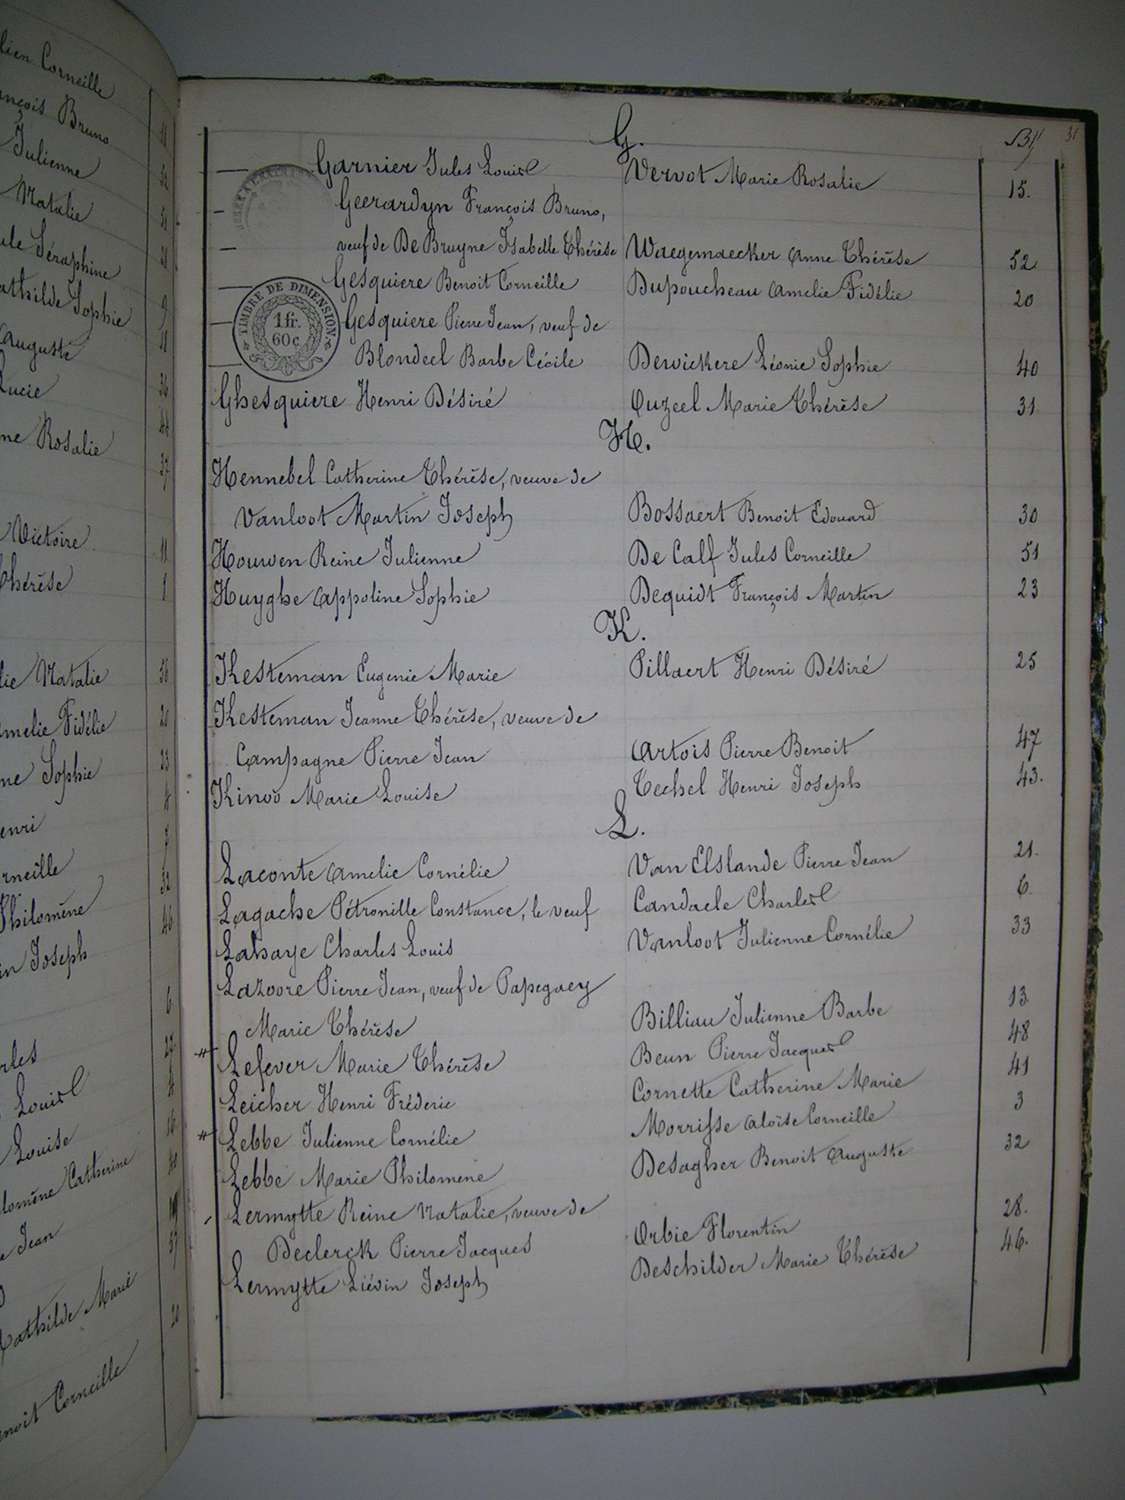 G.
31
31
Garnier Jules Louis Vervot Marie Rosalie 15.
Geerardyn François Bruno,
veuf de De Bruyne Isabelle Thérèse Waegemaecker Anne Thérèse 52
Gesquiere Benoit Corneille Dupoucheau Amelie Fidélie 20
TIMBRE DE DIMENSION
1 fr.
60 c
Gesquiere Pierre Jean, veuf de
Blondeel Barbe Cécile Dewickere Léonie Sophie 40
Ghesquiere Henri Désiré Ouzeel Marie Thérèse 31
H.
Hennebel Catherine Thérèse, veuve de
Vanloot Martin Joseph Bossaert Benoit Edouard 30
Houwen Reine Julienne De Calf Jules Corneille 51
Huyghe Appoline Sophie Dequidt François Martin 23
K.
Kesteman Eugenie Marie Pillaert Henri Désiré 25
Kesteman Jeanne Thérèse, veuve de
Campagne Pierre Jean Artois Pierre Benoit 47
Kinoo Marie Louise Techel Henri Joseph 43.
L.
Laconte Amelie Cornélie Van Elslande Pierre Jean 21.
Lagache Pétronille Constance, le veuf Candaele Charles 6.
Lahaye Charles Louis Vanloot Julienne Cornélie 33
Lazoore Pierre Jean, veuf de Papegaey
Marie Thérèse Billiau Julienne Barbe 13.
Lefever Marie Thérèse Beun Pierre Jacques 48
Leicher Henri Fréderic Cornette Catherine Marie 41
Lebbe Julienne Cornélie Morrisse Aloïse Corneille 3
Lebbe Marie Philomene Desagher Benoit Auguste 32
Lermytte Reine Natalie, veuve de
Declerck Pierre Jacques Orbie Florentin 28.
Lermytte Liévin Joseph Deschilder Marie Thérèse 46.
Corneille
Bruno
Julienne
Natalie
Séraphine
Sophie
Auguste
Lucie
Rosalie
Victoire
Thérèse
Natalie
Amelie Fidélie
Sophie
Philomène
Joseph
Louis
Louise
Catherine
Jean
Mathilde Marie
Benoit Corneille